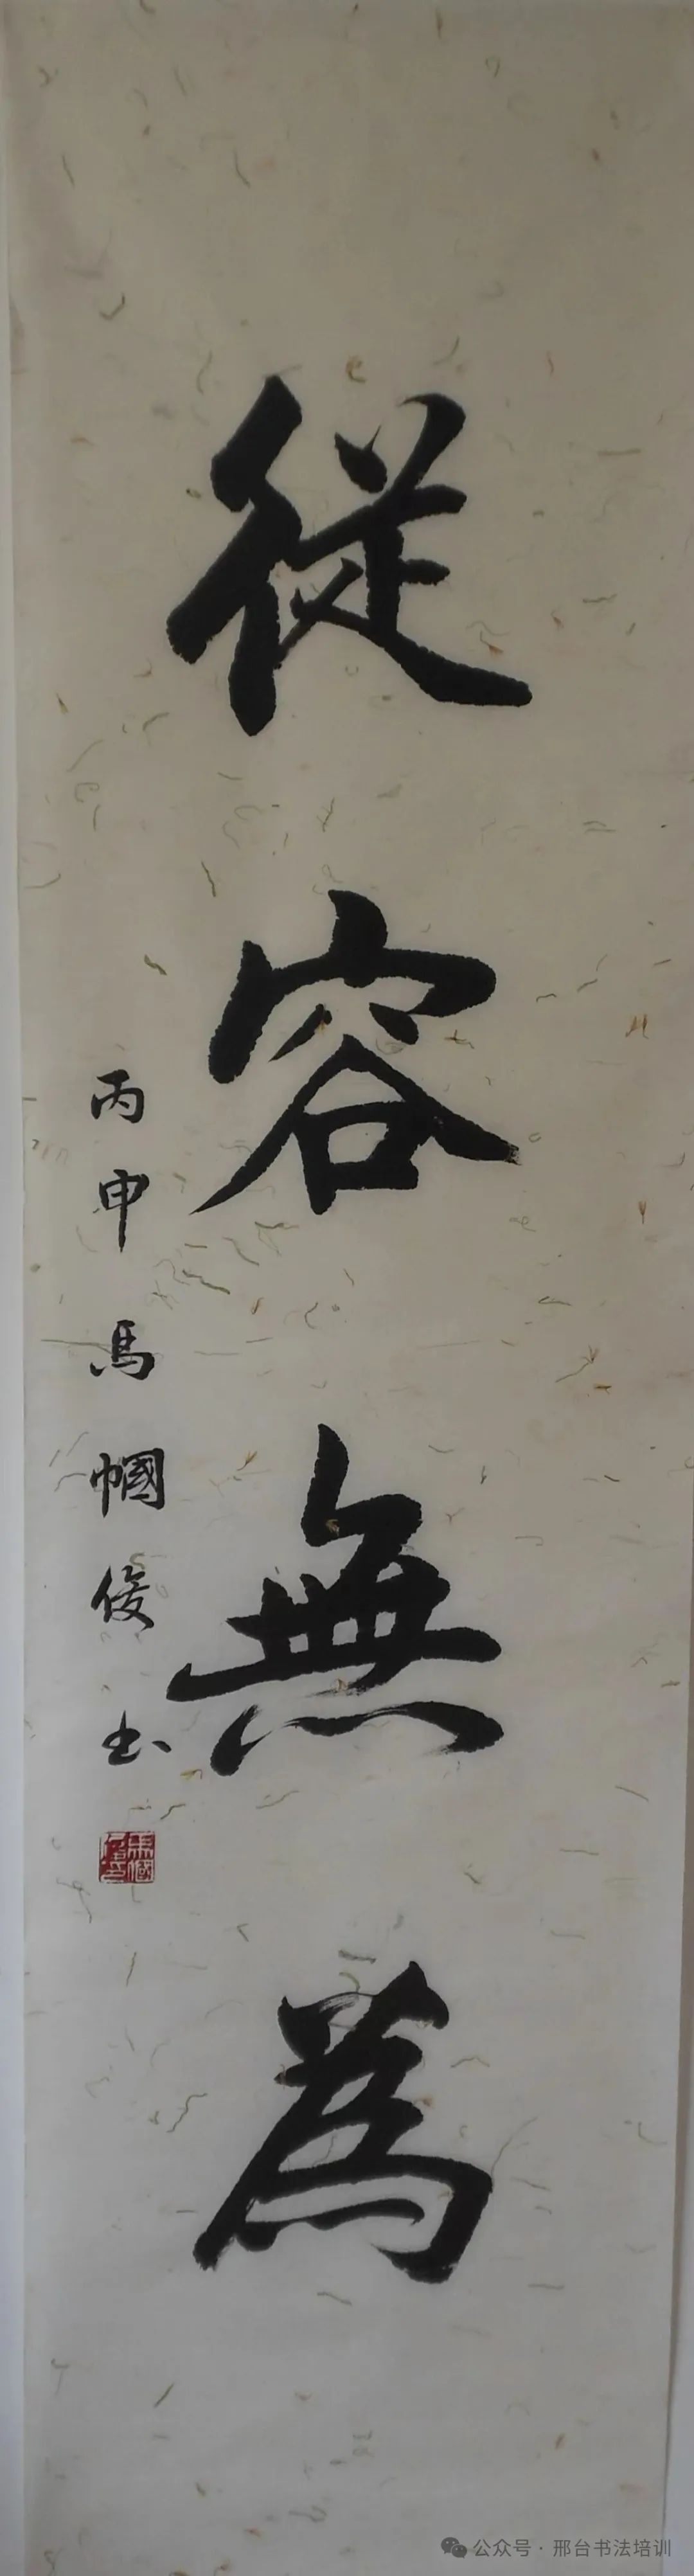 從容無為
丙申馬帼俊书
公众号·邢台书法培训